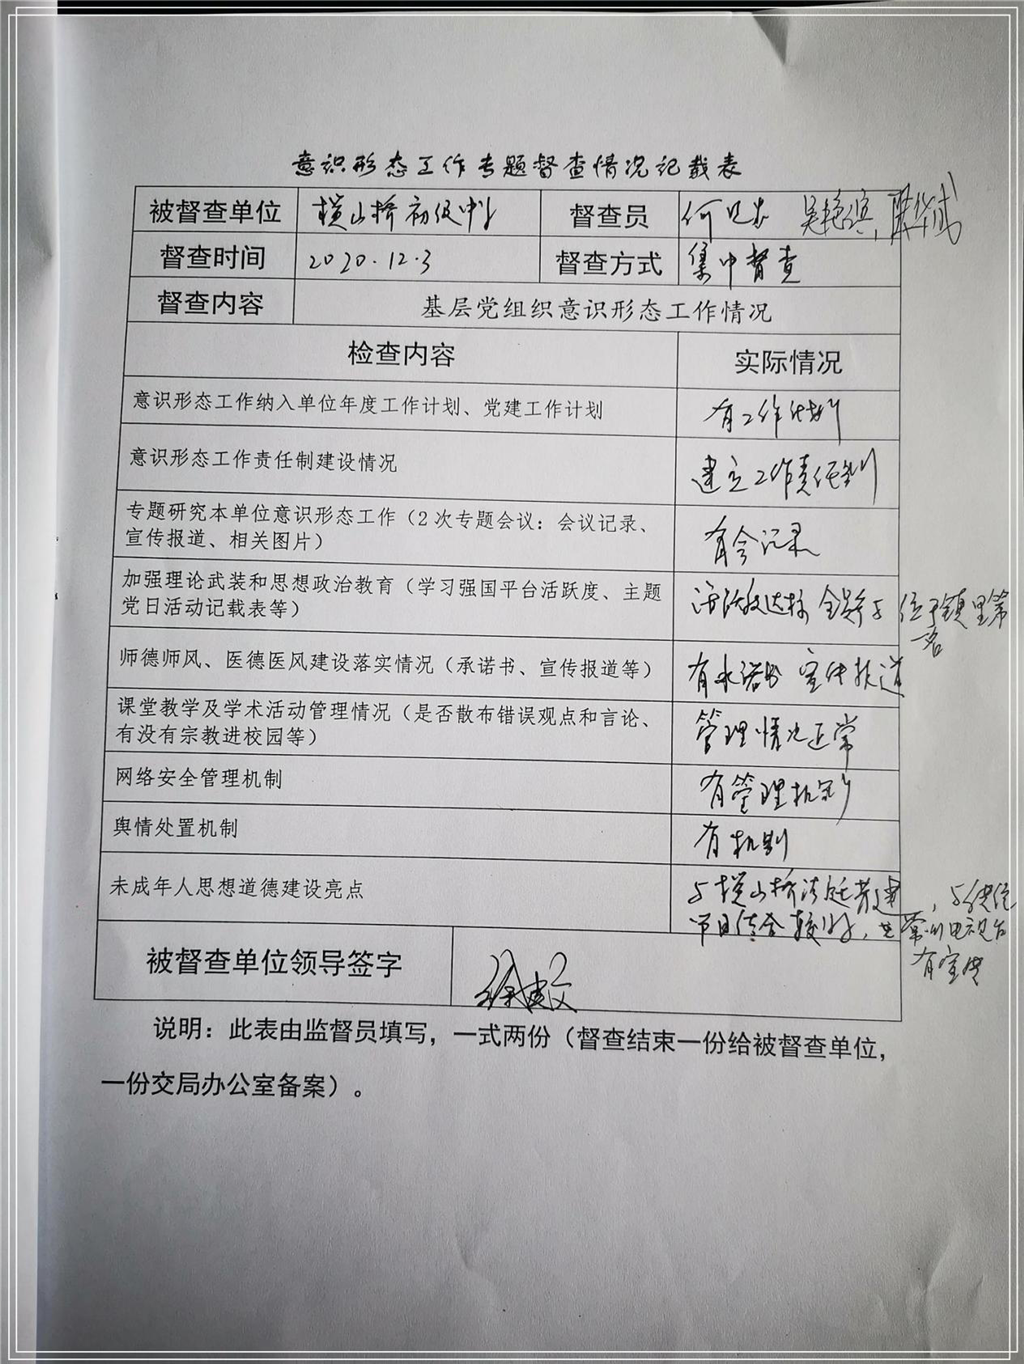 意识形态工作专题督查情况记载表
被督查单位 横山桥初级中学 督查员 何 吴艳滨,
督查时间 2020.12.3 督查方式 集中督查
督查内容 基层党组织意识形态工作情况
检查内容 实际情况
意识形态工作纳入单位年度工作计划、党建工作计划 有工作计划
意识形态工作责任制建设情况 建立工作责任制
专题研究本单位意识形态工作（2次专题会议：会议记录、
宣传报道、相关图片） 有会记录
加强理论武装和思想政治教育（学习强国平台活跃度、主题
党日活动记载表等） 活跃度达标 全 位于镇里第
一名
师德师风、医德医风建设落实情况（承诺书、宣传报道等） 有承诺书 宣传报道
课堂教学及学术活动管理情况（是否散布错误观点和言论、
有没有宗教进校园等） 管理情况正常
网络安全管理机制 有管理机制
舆情处置机制 有机制
未成年人思想道德建设亮点 与横山桥法庭共建，与传统
节日结合较好，在常州电视台
有宣传
被督查单位领导签字
说明：此表由监督员填写，一式两份（督查结束一份给被督查单位，
一份交局办公室备案）。